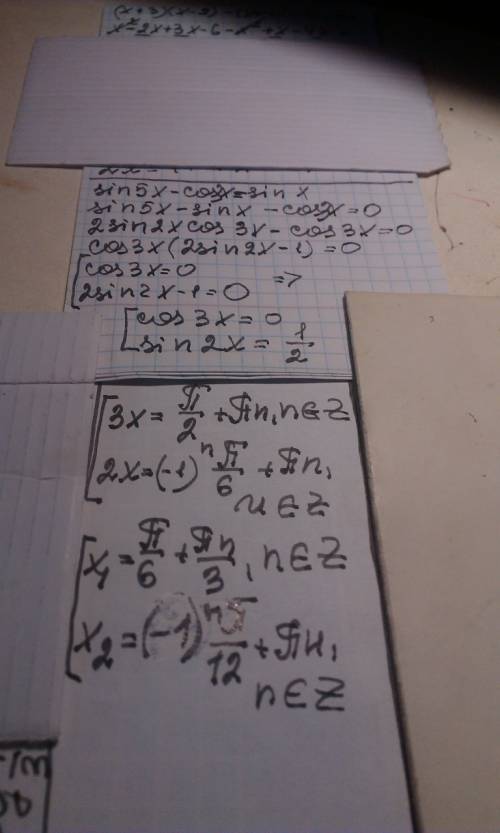 (x+3)(x-2)
x²-2x+3x-6-x²+
sin5x-cos3x=sin x
sin5x-sinx-cos3x=0
2sin2x cos 3x - cos 3x=0
cos3x(2sin2x-1)=0
[cos3x=0
2sin2x-1=0 =>
[cos 3x=0
sin 2x = 1/2
[3x= π/2 +πn, n∈Z
2x=(-1)ⁿ π/6 + πn,
n∈Z
[x₁= π/6 + πn/3, n∈Z
x₂=(-1)ⁿ π/12 + πn,
n∈Z